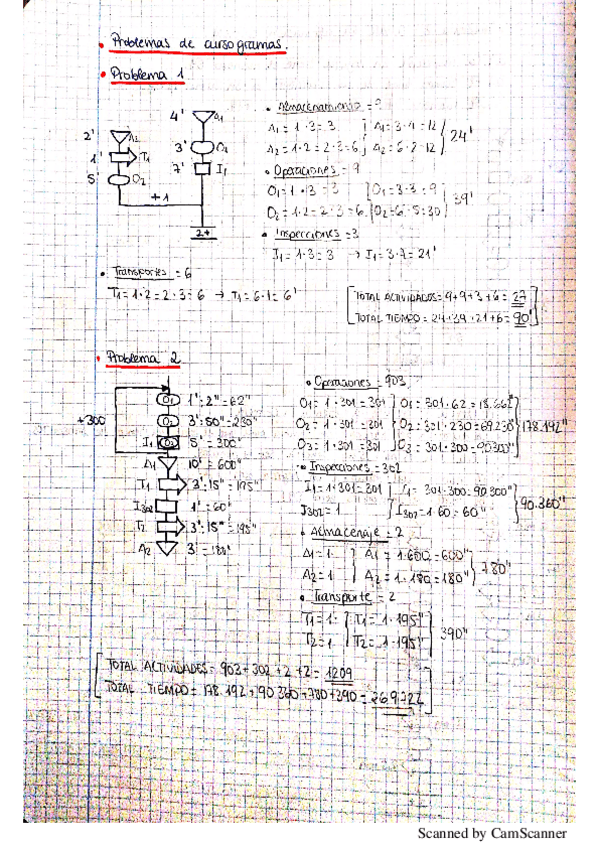 Problemas de cursogramas.
Problema 1
4' A1
2' A2
3' O1
1' T1
7' I1
5' O2
+1
2+
Almacenamiento = 9
A1 = 1·3 = 3 ; A1 = 3·4 = 12
A2 = 1·2 = 2·3 = 6 ; A2 = 6·2 = 12
24'
Operaciones = 9
O1 = 1·3 = 3 O1 = 3·3 = 9
O2 = 1·2 = 2·3 = 6 O2 = 6·5 = 30
39'
Inspecciones = 3
I1 = 1·3 = 3 → I1 = 3·7 = 21'
Transportes = 6
T1 = 1·2 = 2·3 = 6 → T1 = 6·1 = 6'
TOTAL ACTIVIDADES = 9+9+3+6 = 27
TOTAL TIEMPO = 24+39+21+6 = 90'
Problema 2
+300
O1 1':2" = 62"
O2 3':50" = 230"
I1 O3 5' = 300"
A1 10' = 600"
T1 3':15" = 195"
I302 1' = 60"
T2 3':15" = 195"
A2 3' = 180"
Operaciones = 903
O1 = 1·301 = 301 O1 = 301·62 = 18.662"
O2 = 1·301 = 301 O2 = 301·230 = 69.230"
O3 = 1·301 = 301 O3 = 301·300 = 90300"
178.192"
Inspecciones = 302
I1 = 1·301 = 301 I1 = 301·300 = 90.300"
I302 = 1 I302 = 1·60 = 60"
90.360"
Almacenaje = 2
A1 = 1· A1 = 1·600 = 600"
A2 = 1 A2 = 1·180 = 180"
780"
Transporte = 2
T1 = 1· T1 = 1·195"
T2 = 1 T2 = 1·195"
390"
TOTAL ACTIVIDADES = 903+302+2+2 = 1209
TOTAL TIEMPO = 178.192+90360+780+390 = 269.722
Scanned by CamScanner